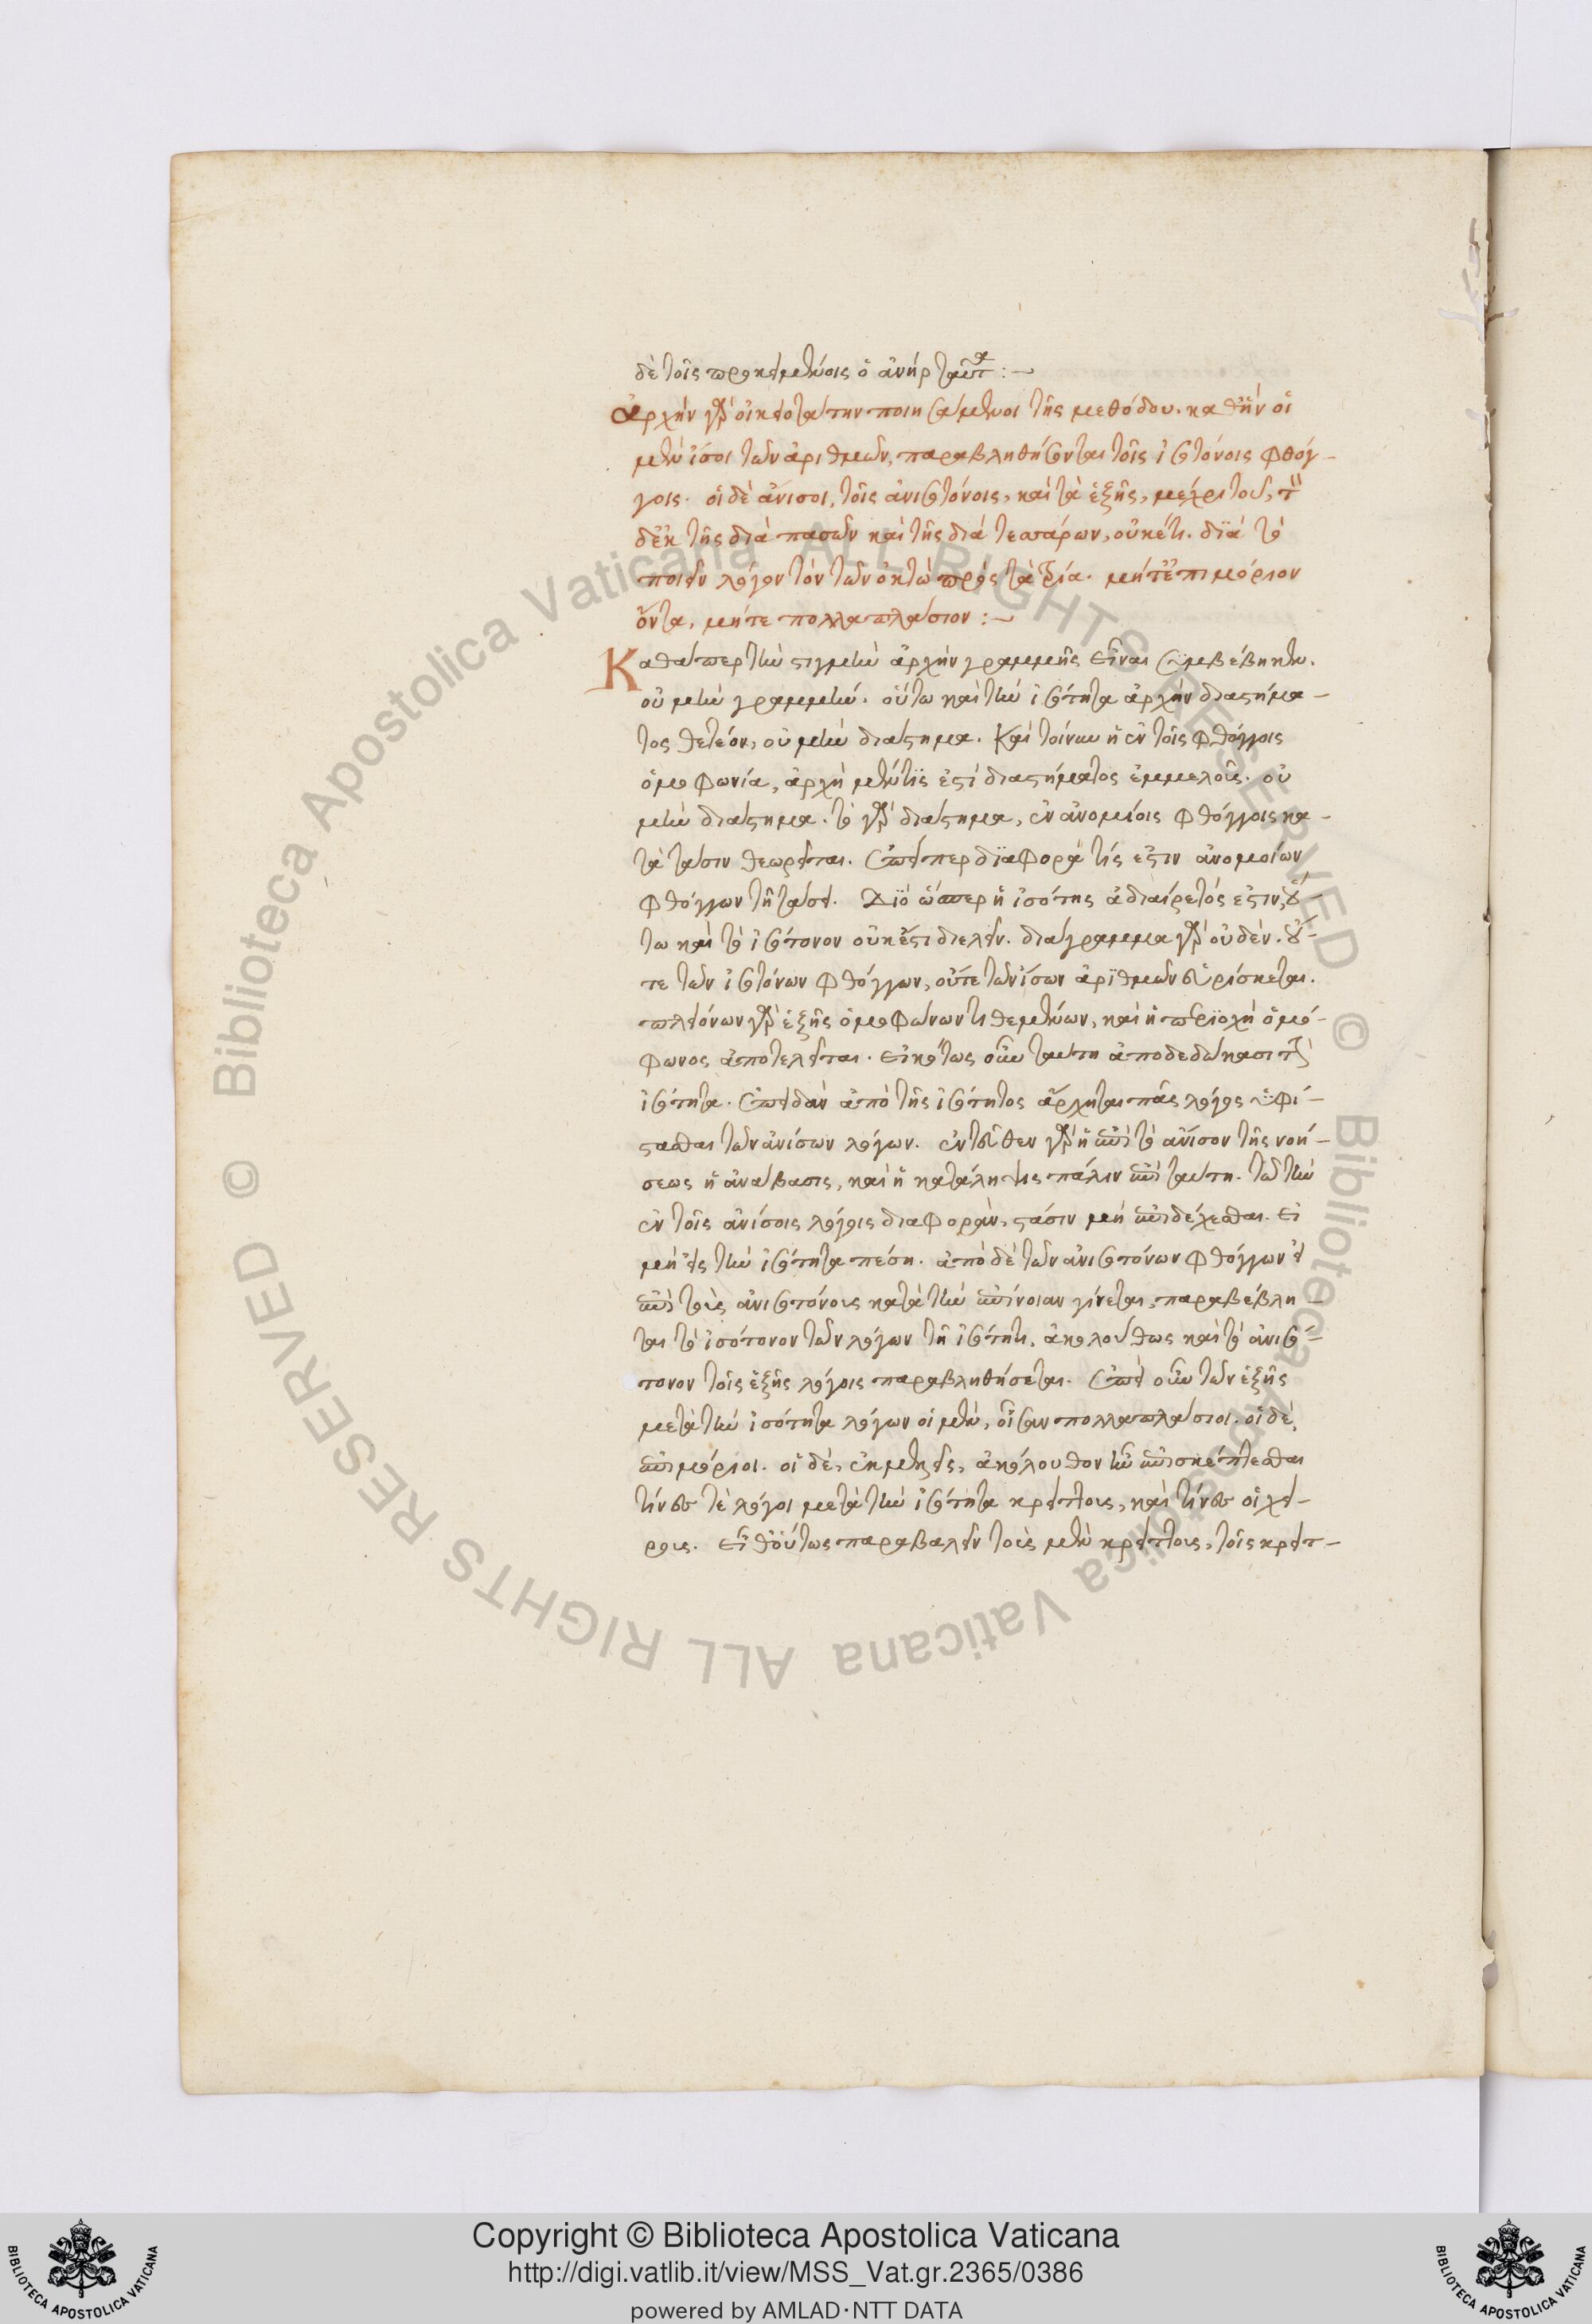 δὲ τοῖς προκειμένοις ὁ ἀνὴρ ταῦτα :—
ἀρχὴν γὰρ οἰκειοτάτην ποιησάμενοι τῆς μεθόδου. καθ' ἣν οἱ
μὲν ἴσοι τῶν ἀριθμῶν, παραβληθήσονται τοῖς ἰσοτόνοις φθόγ-
γοις. οἱ δὲ ἄνισοι, τοῖς ἀνισοτόνοις, καὶ τὰ ἑξῆς, μέχρι τοῦ, τὸ
δ' ἐκ τῆς διὰ πασῶν καὶ τῆς διὰ τεσσάρων, οὐκέτι. διὰ τὸ
ποιεῖν λόγον τὸν τῶν ὀκτὼ πρὸς τὰ τρία. μήτ' ἐπιμόριον
ὄντα, μήτε πολλαπλάσιον :—
Καθάπερ τὴν στιγμὴν ἀρχὴν γραμμῆς εἶναι συμβέβηκεν.
οὐ μὴν γραμμήν. οὕτω καὶ τὴν ἰσότητα ἀρχὴν διαστήμα-
τος θετέον, οὐ μὴν διάστημα. Καὶ τοίνυν ἡ ἐν τοῖς φθόγγοις
ὁμοφωνία, ἀρχὴ μέν τίς ἐστι διαστήματος ἐμμελοῦς. οὐ
μὴν διάστημα. τὸ γὰρ διάστημα, ἐν ἀνομοίοις φθόγγοις κα-
τὰ τάσιν θεωρεῖται. ἐπείπερ διαφορά τίς ἐστιν ἀνομοίων
φθόγγων τῇ τάσει. Διὸ ὥσπερ ἡ ἰσότης ἀδιαίρετός ἐστιν, οὕ-
τω καὶ τὸ ἰσότονον οὐκ ἔστι διελεῖν. διάγραμμα γὰρ οὐδέν. οὔ-
τε τῶν ἰσοτόνων φθόγγων, οὔτε τῶν ἴσων ἀριθμῶν εὑρίσκεται.
πλειόνων γὰρ ἑξῆς ὁμοφώνων τιθεμένων, καὶ ἡ περιοχὴ ὁμό-
φωνος ἀποτελεῖται. εἰκότως οὖν ταύτῃ ἀποδεδώκασι τὴν
ἰσότητα. ἐπειδὰν ἀπὸ τῆς ἰσότητος ἄρχηται πᾶς λόγος ὑφί-
στασθαι τῶν ἀνίσων λόγων. ἐντεῦθεν γὰρ ἡ ἐπὶ τὸ ἄνισον τῆς νοή-
σεως ἡ ἀνάβασις, καὶ ἡ κατάληψις πάλιν ἐπὶ ταύτῃ. τῷ τὴν
ἐν τοῖς ἀνίσοις λόγοις διαφοράν, στάσιν μὴ ἐπιδέχεσθαι. εἰ
μὴ εἰς τὴν ἰσότητα πέσῃ. ἀπὸ δὲ τῶν ἀνισοτόνων φθόγγων εἰ
ἐπὶ τοὺς ἀνισοτόνους κατὰ τὴν ἐπίνοιαν γίνεται, παραβέβλη-
ται τὸ ἰσότονον τῶν λόγων τῇ ἰσότητι, ἀκολούθως καὶ τὸ ἀνισό-
τονον τοῖς ἑξῆς λόγοις παραβληθήσεται. ἐπεὶ οὖν τῶν ἑξῆς
μετὰ τὴν ἰσότητα λόγων οἱ μὲν, ἦσαν πολλαπλάσιοι. οἱ δὲ,
ἐπιμόριοι. οἱ δὲ, ἐπιμερεῖς, ἀκόλουθον ἦν ἐπισκέπτεσθαι
τίνες τὲ λόγοι μετὰ τὴν ἰσότητα κρείττους, καὶ τίνες οἱ χεί-
ρους. εἶθ' οὕτως παραβαλεῖν τοὺς μὲν κρείττους, τοῖς κρείτ-
Copyright © Biblioteca Apostolica Vaticana
http://digi.vatlib.it/view/MSS_Vat.gr.2365/0386
powered by AMLAD·NTT DATA
BIBLIOTECA APOSTOLICA VATICANA
BIBLIOTECA APOSTOLICA VATICANA
© Biblioteca Apostolica Vaticana ALL RIGHTS RESERVED
© Biblioteca Apostolica Vaticana ALL RIGHTS RESERVED